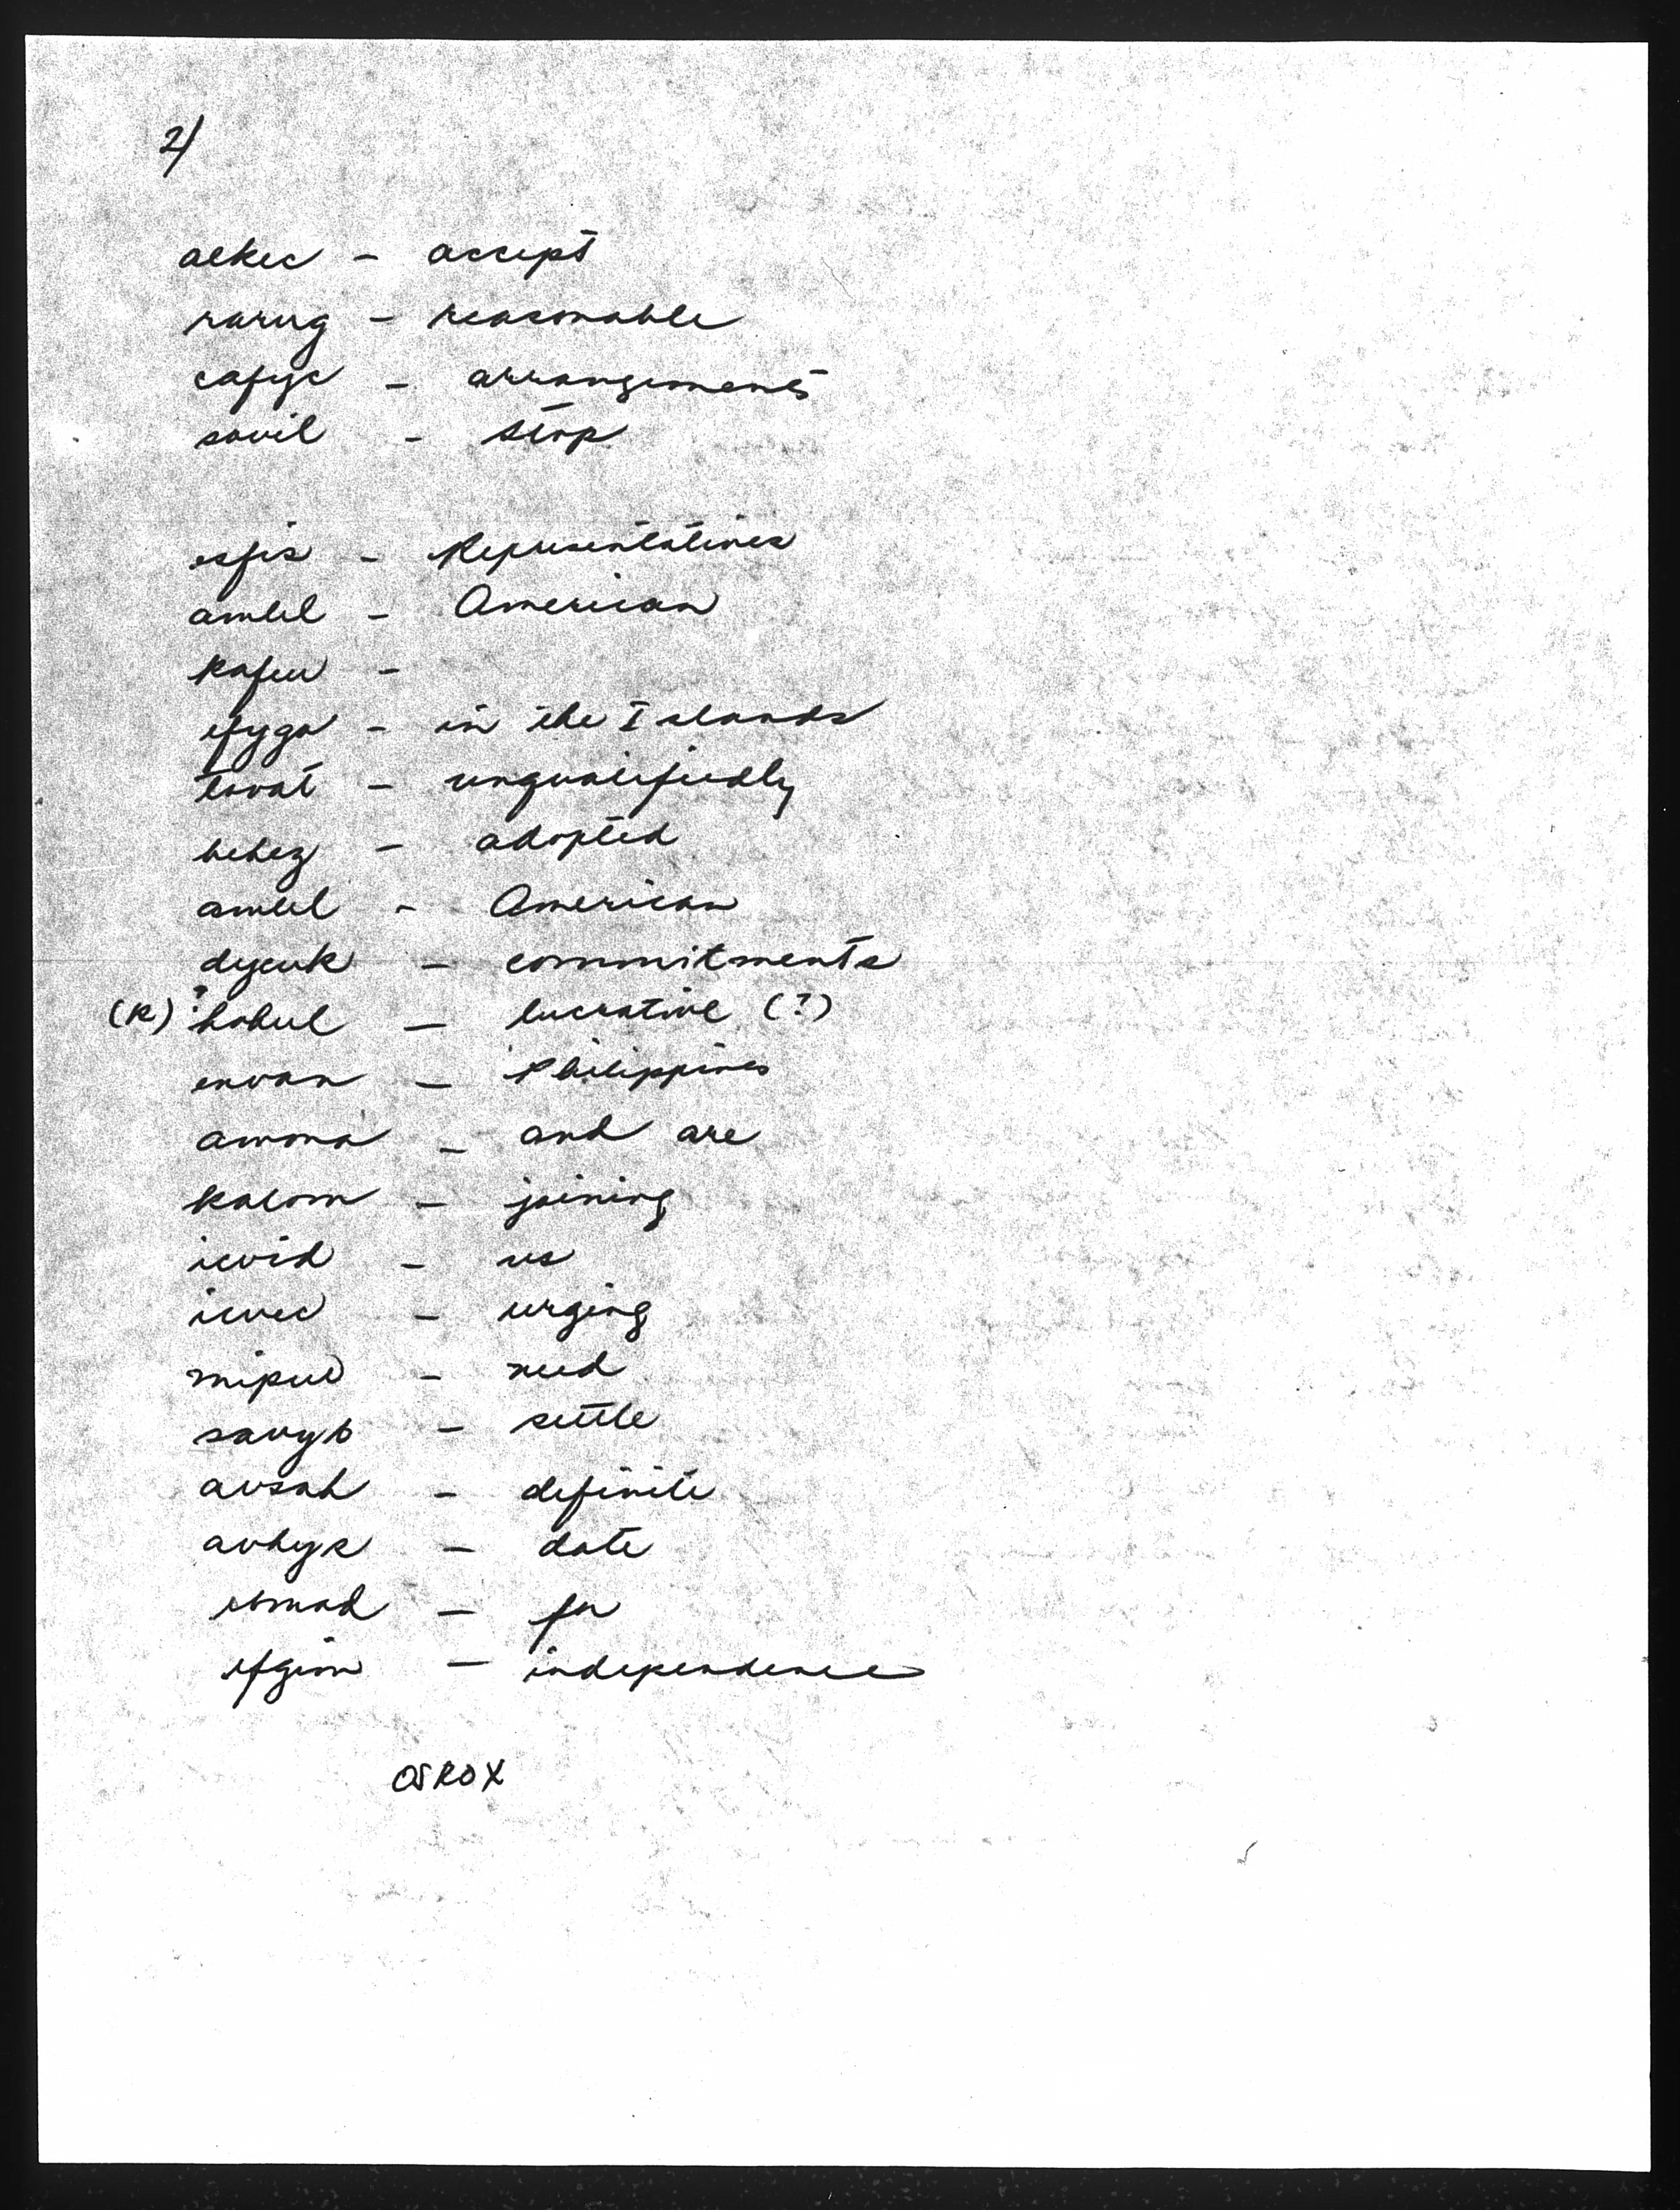 2/
aekec - accept
rarug - reasonable
cafyc - arrangements
sovil - stop
esfis - Representatives
amlel - American
kafew -
efygo - in the Islands
tovat - unqualifiedly
behez - adopted
amlel - American
dycuk - commitments
(k) ? hohul - lucrative (?)
envan - Philippines
amona - and are
kalom - joining
icvid - us
icvec - urging
mipud - need
savyb - settle
avsah - definite
avhyk - date
ebmad - for
efgim - independence
OSROX